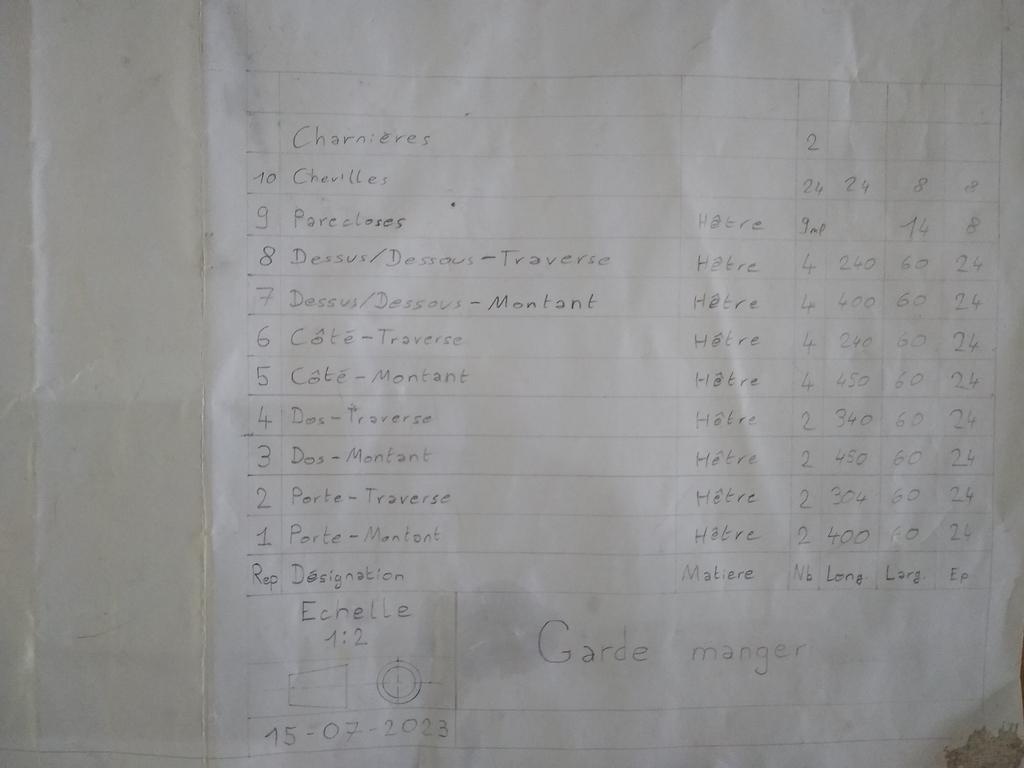 Charnières 2
10 Chevilles 24 24 8 8
9 Parecloses Hêtre 9ml 14 8
8 Dessus/Dessous-Traverse Hêtre 4 240 60 24
7 Dessus/Dessous-Montant Hêtre 4 400 60 24
6 Côté-Traverse Hêtre 4 240 60 24
5 Côté-Montant Hêtre 4 450 60 24
4 Dos-Traverse Hêtre 2 340 60 24
3 Dos-Montant Hêtre 2 450 60 24
2 Porte-Traverse Hêtre 2 304 60 24
1 Porte-Montant Hêtre 2 400 60 24
Rep Désignation Matiere Nb Long. Larg. Ep
Echelle
1:2
Garde manger
15-07-2023